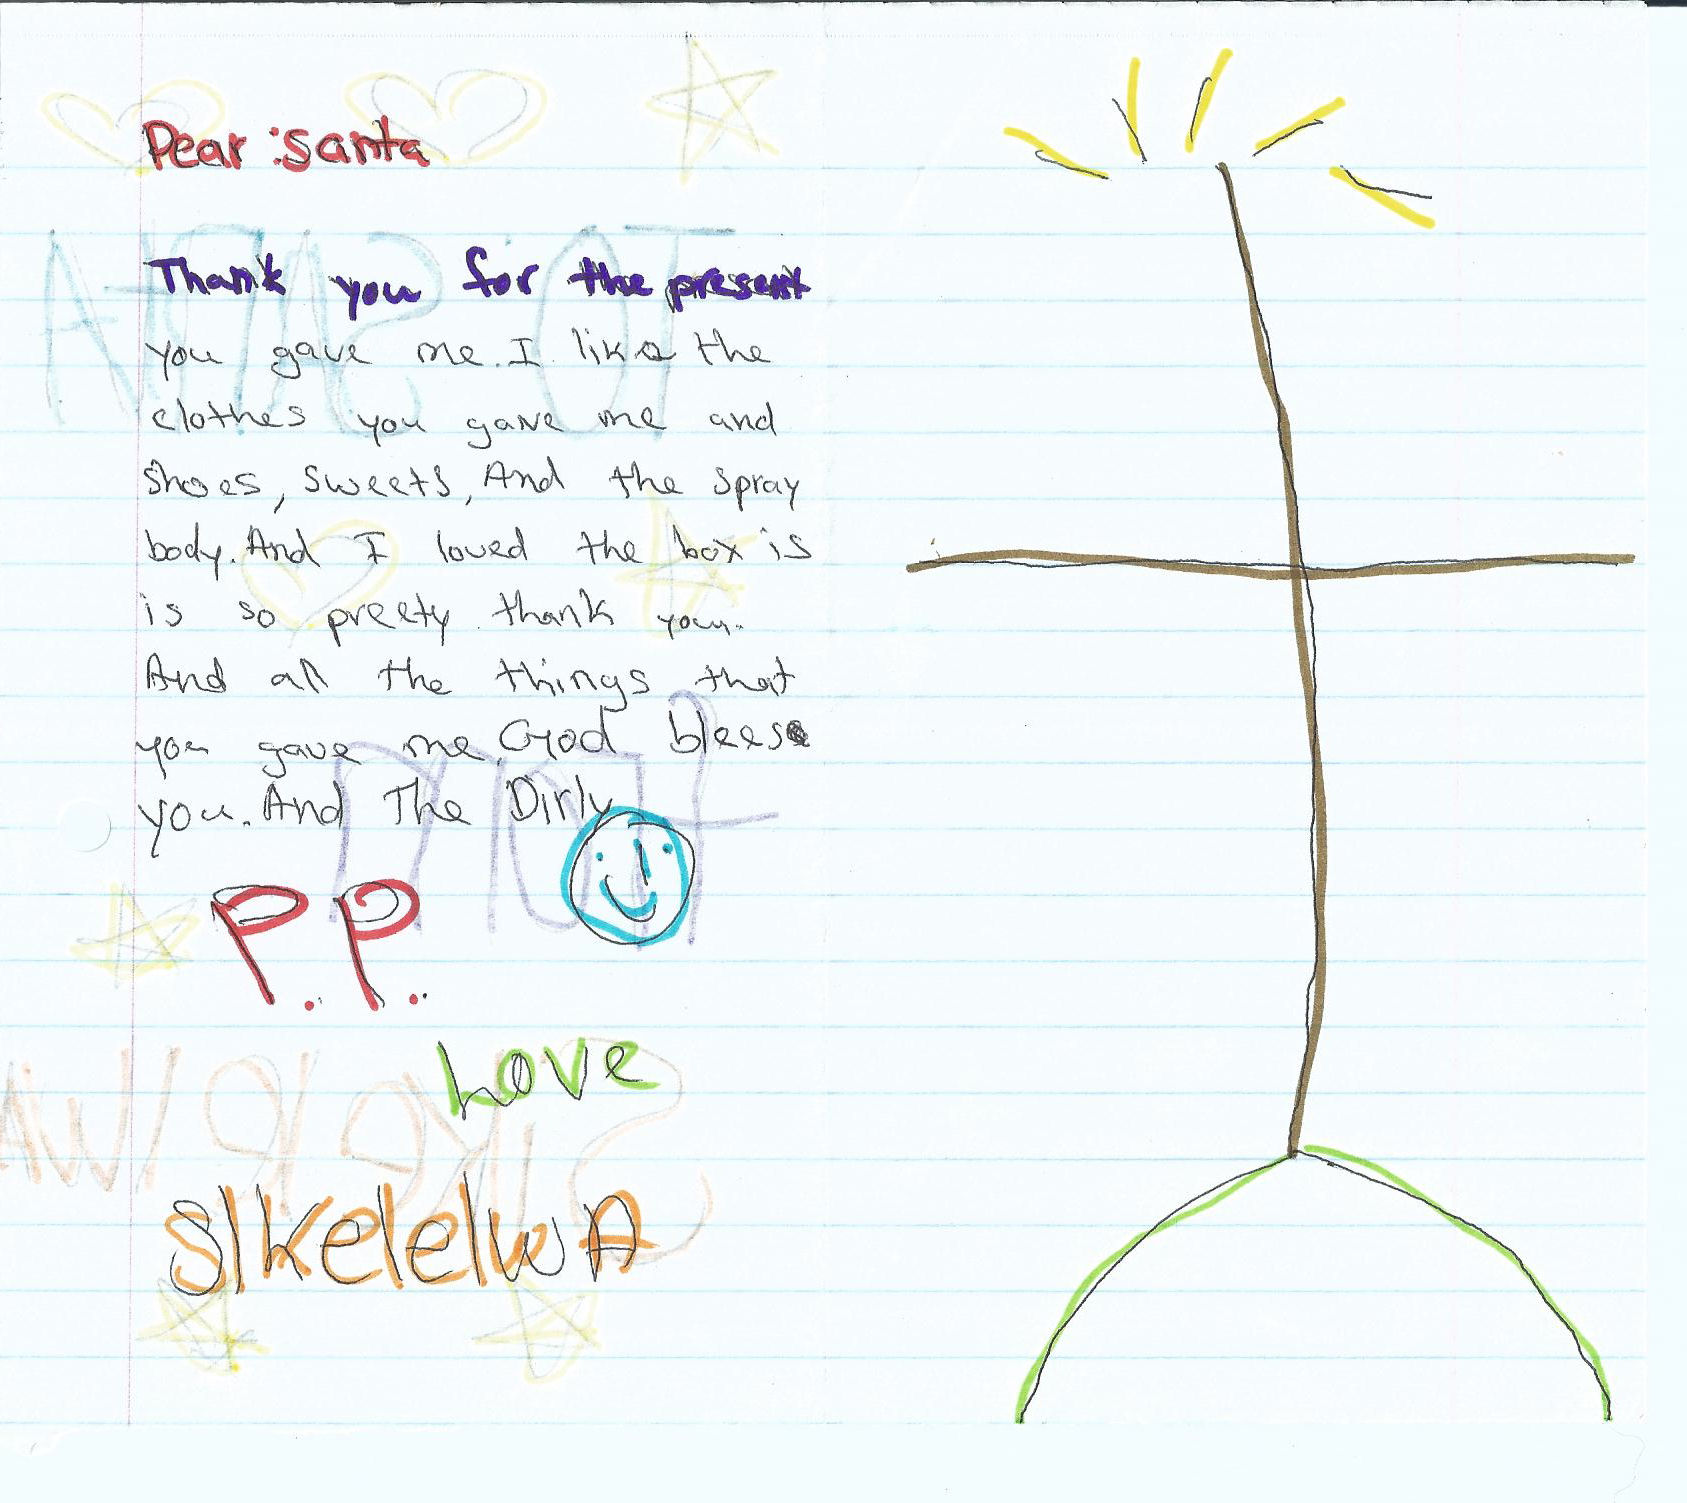 Dear :santa
Thank you for the present
you gave me. I like the
clothes you gave me and
shoes, sweets, And the spray
body. And I loved the box is
is so preety thank you.
And all the things that
you gave me. God blees
you. And The Dirly
P.P.
Love
SIkelelwA
TO: SANTA
FROM
SIKELELWA